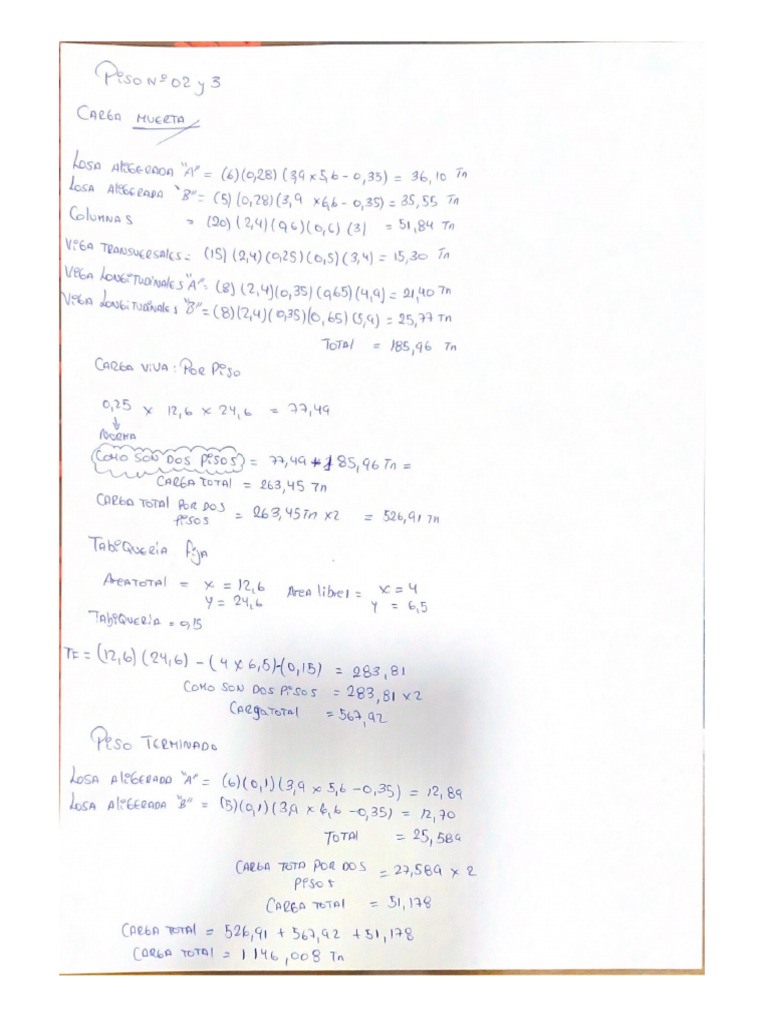 Piso Nº 02 y 3
CARGA MUERTA
LOSA ALIGERADA "A" = (6)(0,28)(3,9 x 5,6 - 0,35) = 36,10 Tn
LOSA ALIGERADA "B" = (5)(0,28)(3,9 x 6,6 - 0,35) = 35,55 Tn
COLUMNAS = (20)(2,4)(0,6)(0,6)(3) = 51,84 Tn
VIGA TRANSVERSALES = (15)(2,4)(0,25)(0,5)(3,4) = 15,30 Tn
VIGA LONGITUDINALES "A" = (8)(2,4)(0,35)(0,65)(4,9) = 21,40 Tn
VIGA LONGITUDINALES "B" = (8)(2,4)(0,35)(0,65)(5,9) = 25,77 Tn
TOTAL = 185,96 Tn
CARGA VIVA : POR PISO
0,25 x 12,6 x 24,6 = 77,49
NORMA
COMO SON DOS PISOS = 77,49 + 185,96 Tn =
CARGA TOTAL = 263,45 Tn
CARGA TOTAL POR DOS PISOS = 263,45 Tn x 2 = 526,91 Tn
TABIQUERIA fija
AREA TOTAL = x = 12,6 Area libre 1 = x = 4
y = 24,6 y = 6,5
TABIQUERIA = 0,15
TF = (12,6)(24,6) - (4 x 6,5) - (0,15) = 283,81
COMO SON DOS PISOS = 283,81 x 2
CARGA TOTAL = 567,92
PISO TERMINADO
LOSA ALIGERADA "A" = (6)(0,1)(3,9 x 5,6 - 0,35) = 12,89
LOSA ALIGERADA "B" = (5)(0,1)(3,9 x 6,6 - 0,35) = 12,70
TOTAL = 25,589
CARGA TOTA POR DOS PISOS = 27,589 x 2
CARGA TOTAL = 51,178
CARGA TOTAL = 526,91 + 567,92 + 51,178
CARGA TOTAL = 1 146,008 Tn